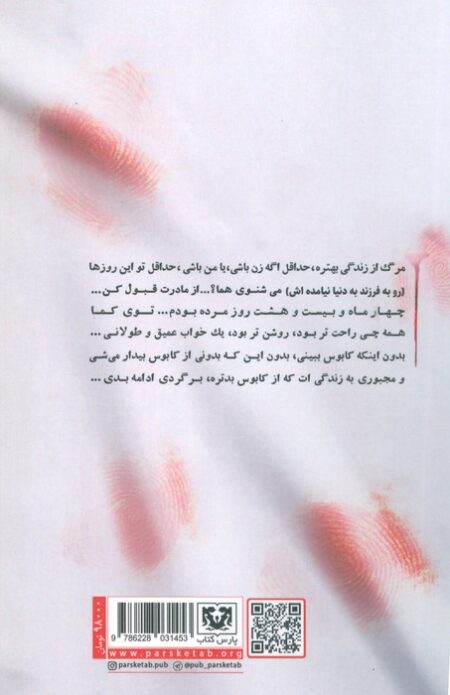 مرگ از زندگی بهتره، حداقل اگه زن باشی، یا من باشی، حداقل تو این روزها
(رو به فرزند به دنیا نیامده اش) می شنوی هما؟... از مادرت قبول کن...
چهار ماه و بیست و هشت روز مرده بودم... توی کما
همه چی راحت تر بود، روشن تر بود، یك خواب عمیق و طولانی ..
بدون اینکه کابوس ببینی، بدون این که بدونی از کابوس بیدار می‌شی
و مجبوری به زندگی ات که از کابوس بدتره، برگردی ادامه بدی ...
۹۸۰۰۰ تومان
9 786228 031453
پارس کتاب
www.parsketab.org
parsketab.pub
@pub_parsketab